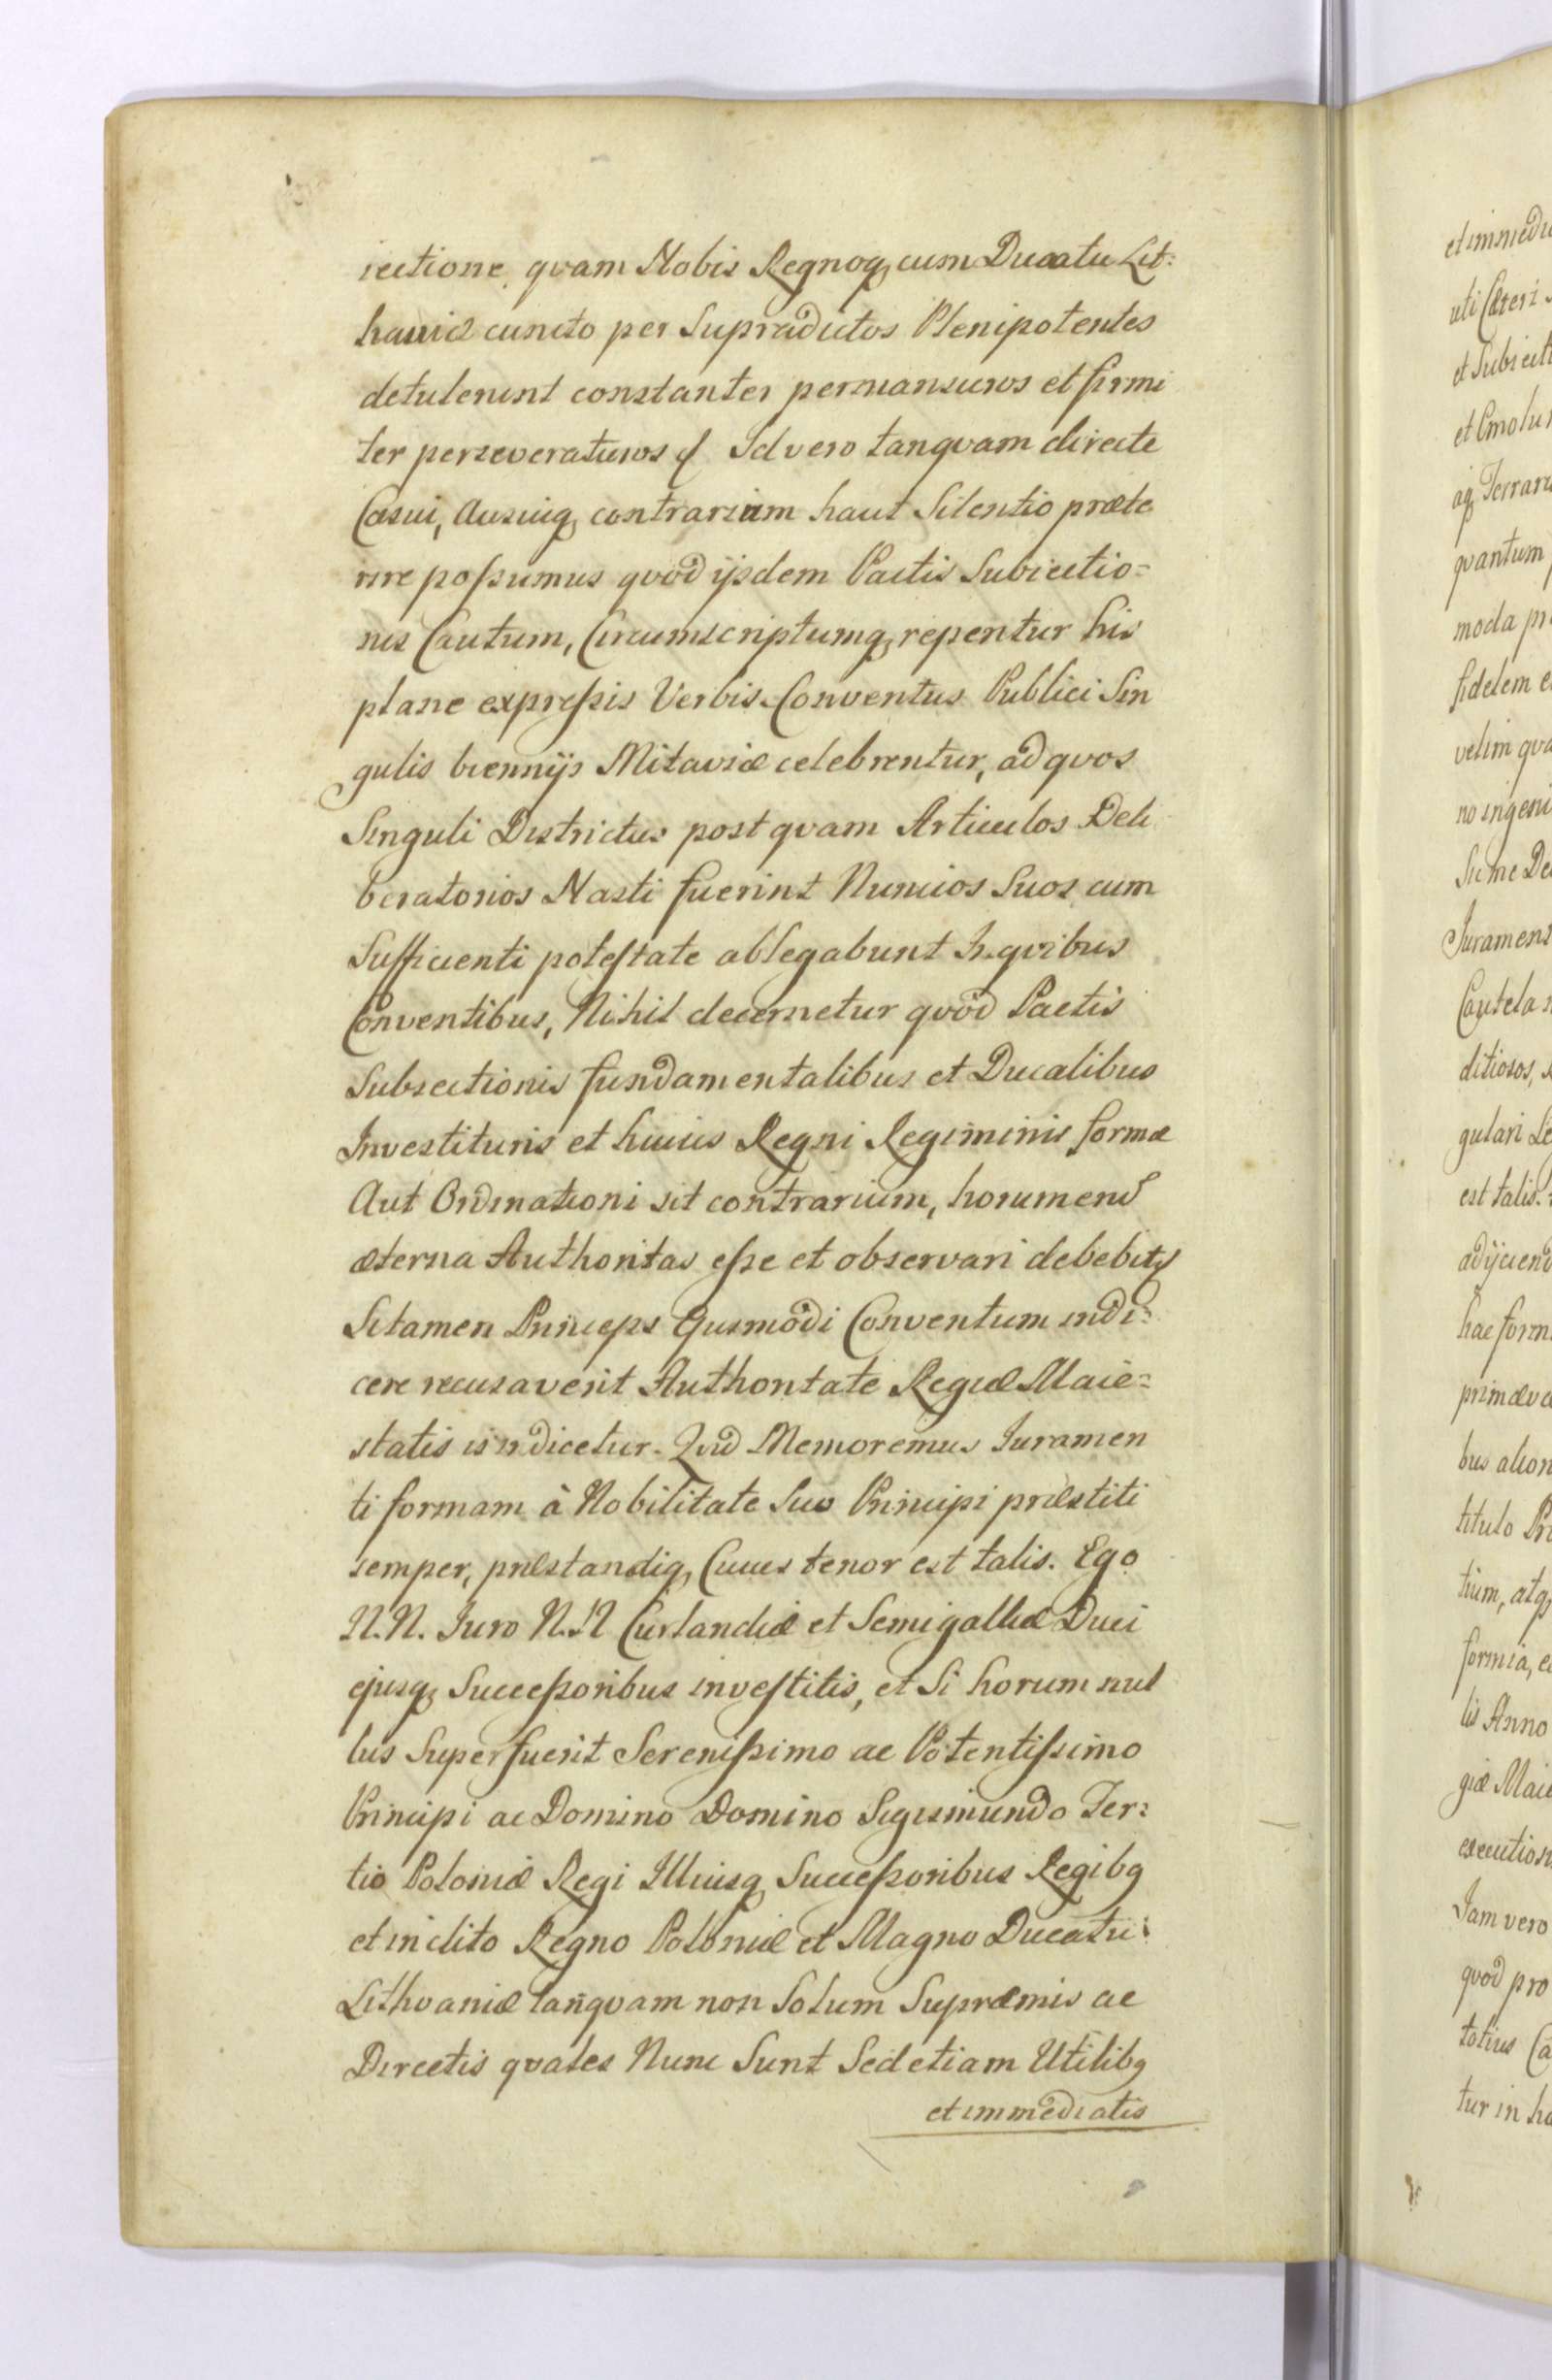 iectione quam Nobis Regnoq, cum Ducatu Lit:
haniæ cuncto per Supradictos Plenipotentes
detulerunt constanter permansuros et firmi
ter perseveraturos Id vero tanquam directe
Casui, Ausuiq, contrarium haut Silentio præte
rire possumus quod ijsdem Pactis Subiectio=
nis Cautum, Circumscriptumq, reperitur his
plane expressis Verbis. Conventus Publici Sin
gulis biennijs Mitaviæ celebrentur, ad quos
Singuli Districtus post quam Articulos Deli
beratorios Nasti fuerint Nuncios Suos cum
Sufficienti potestate ablegabunt In quibus
Conventibus, Nihil decernetur quod Pactis
Subiectionis fundamentalibus et Ducalibus
Investituris et huius Regni Regiminis formæ
Aut Ordinationi sit contrarium, horum enim
æterna Authoritas esse et observari debebit
Si tamen Princeps Ejusmodi Conventum indi=
cere recusaverit Authoritate Regiæ Maie=
statis indicetur. Quid Memoremus Iuramen
ti formam à Nobilitate Suo Principi præstiti
semper, præstandiq, Cuius tenor est talis. Ego
N.N. Iuro N.N Curlandiæ et Semigalliæ Duci
ejusq, Successoribus investitis, et Si horum nul
lus Superfuerit Serenissimo ac Potentissimo
Principi ac Domino Domino Sigismundo Ter:
tio Poloniæ Regi Illiusq, Successoribus Regibq
et inclito Regno Poloniæ et Magno Ducatui
Lithvaniæ tanquam non Solum Supræmis ac
Directis quales Nunc Sunt Sed etiam Utilibq
et immediatis
et immedi
uti Cæteri
et Subiecti
et Emolu
aq, Terraru
quantum
moda pr
fidelem e
velim qua
no ingeni
Sic me De
Iurament
Cautela
ditiosos,
gulari Le
est talis.
adijciend
hac form
primæva
bus alior
titulo Pr
tium, atq,
formia, e
lis Anno
giæ Maie
execution
Iam vero
quod pro
totius Ca
tur in ha